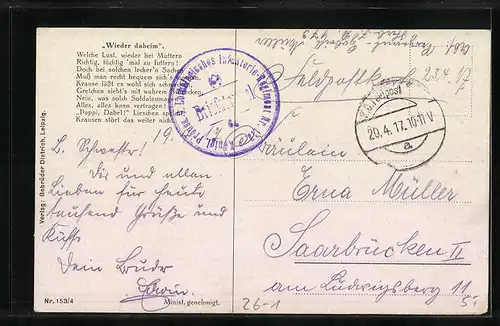 „Wieder daheim“.
Welche Lust, wieder bei Muttern
Richtig, tüchtig 'mal zu futtern!
Doch bei solchen lecker'n Sach
Muß man recht bequem sich's
Krause läßt es wohl sich schme
Gretchen sieht's mit wahrem
Nein, was solch Soldatenma
Alles, alles kann vertragen!
„Pappi, Dabel!“ Lieschen sp
Krausen stört das weiter nicht
Müller
Feldpostkarte
23.4.17
Infanterie-Regiment Nr.
20.4.17.10-11V
a
19.
L. Schwester!
Dir und allen
Lieben für heute
tausend Grüße und
Küsse
Dein Bruder
Erwin.
Fräulein
Erna Müller
Saarbrücken II
am Ludwigsberg 11
Verlag: Gebrüder Dietrich, Leipzig.
Nr. 153/4
Minist. genehmigt.
26-1